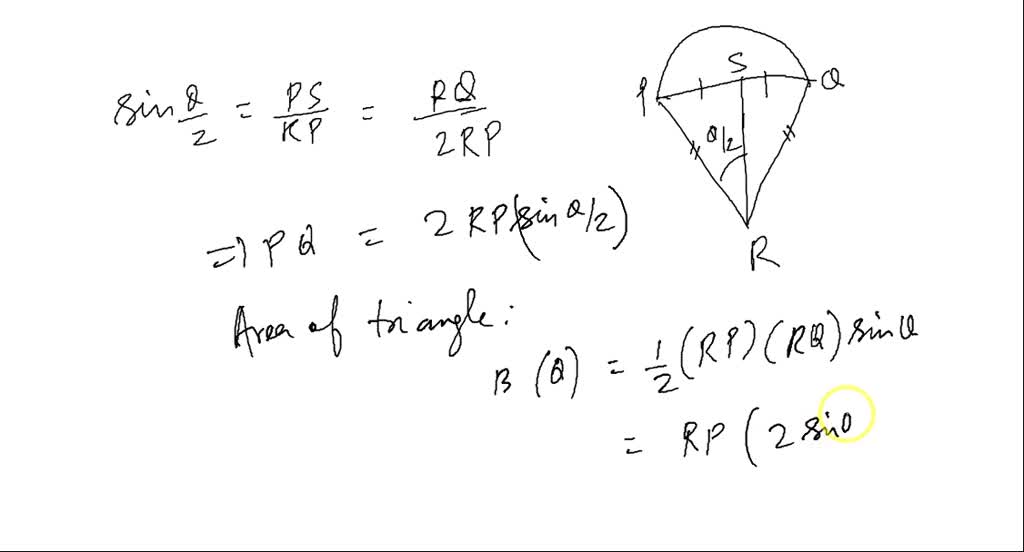 sin θ/2 = PS/RP = PQ/2RP
⇒ PQ = 2 RP (sin θ/2)
Area of triangle:
B (θ) = 1/2 (RP) (RQ) sin θ
= RP ( 2 sin θ
P
S
Q
θ/2
R